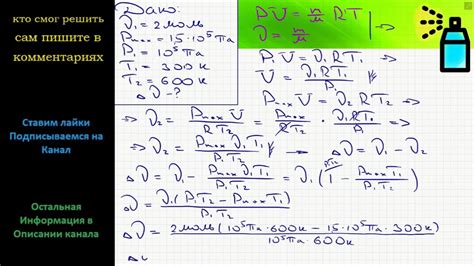 кто смог решить
сам пишите в
комментариях
Ставим лайки
Подписываемся на
Канал
Остальная
Информация в
Описании канала
Дано:
ν₁ = 2 моль
Pmax = 1,5·10⁵ Па
P₁ = 10⁵ Па
T₁ = 300 К
T₂ = 600 К
Δν - ?
PV = m/μ RT
ν = m/μ
P₁V = ν₁RT₁
V = ν₁RT₁/P₁
PmaxV = ν₂RT₂ =>
=> ν₂ = PmaxV/RT₂ = Pmax/RT₂ · ν₁RT₁/P₁
=> ν₂ = Pmaxν₁T₁/P₁T₂ => Δν = ν₁ - ν₂
Δν = ν₁ - Pmaxν₁T₁/P₁T₂ = ν₁(1 - PmaxT₁/P₁T₂)
Δν = ν₁(P₁T₂ - PmaxT₁)/P₁T₂
Δν = 2 моль(10⁵Па·600К - 1,5·10⁵Па·300К)/10⁵Па·600К